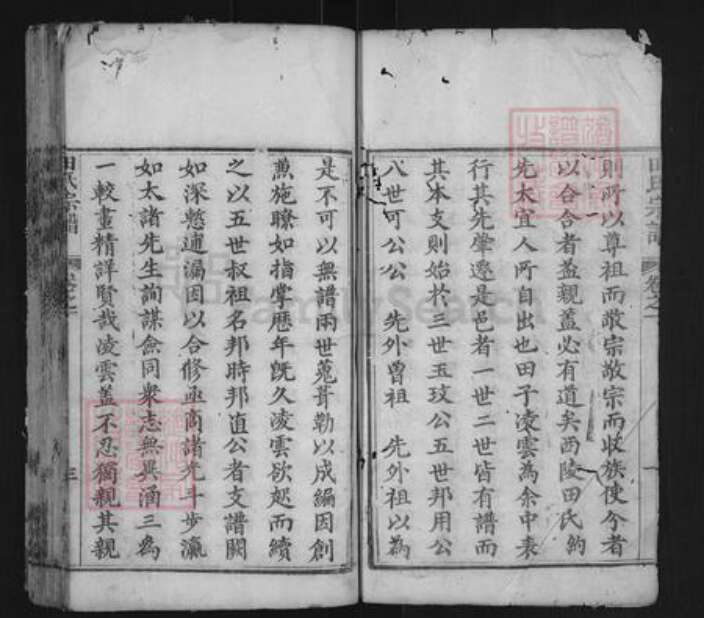 則所以尊祖而敬宗敬宗而收族使今者
以合合者益親蓋必有道矣西陵田氏約
先太宜人所自出也田子凌雲為余中表
行其先肇遷是邑者一世二世皆有譜而
其本支則始於三世玉玟公五世邦用公
八世可公公 先外曾祖 先外祖以為
是不可以無譜兩世蒐葺勒以成編因創
焉施瞭如指掌歷年既久凌雲欲起而續
之以五世叔祖名邦時邦直公者支譜闕
如深愁逋漏因以合修亟商諸允斗步瀛
如太諸先生詢謀僉同衆志無異涵三為
一較畫精詳賢哉凌雲蓋不忍獨親其親
田氏宗譜
卷之一
三
田氏宗譜
卷之一
FamilySearch